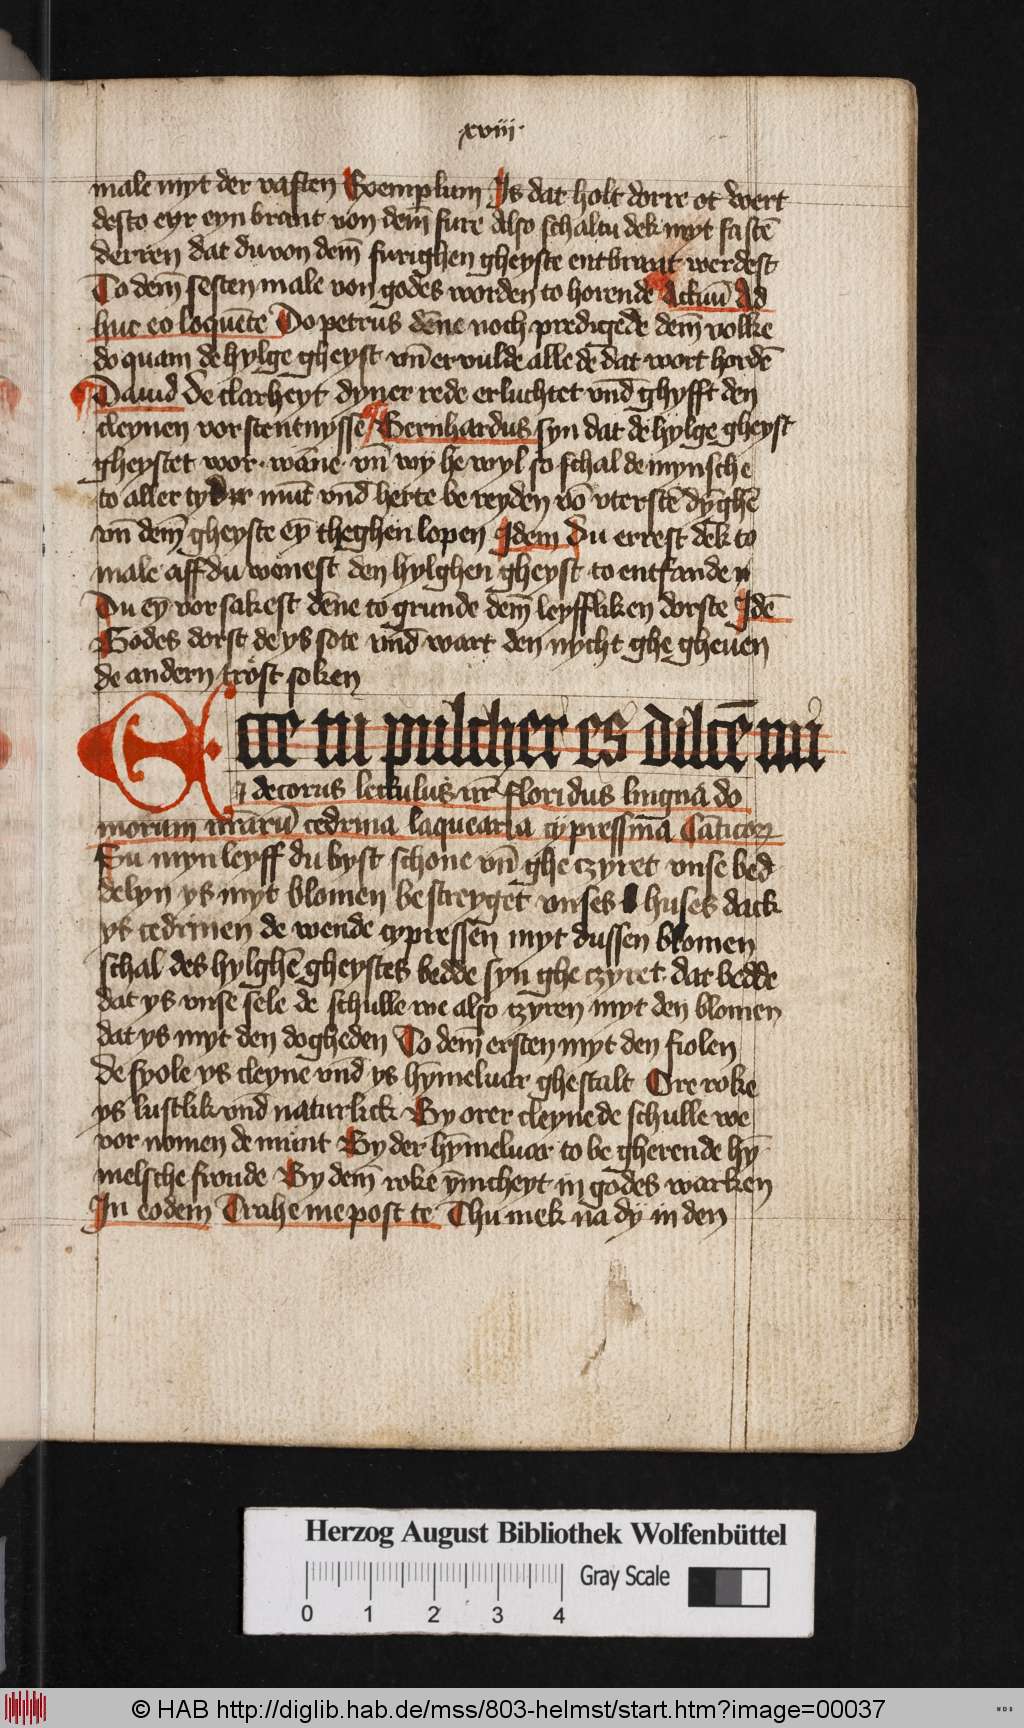 .xviij.
male myt der vasten Exemplum Is dat holt dorre et wert
desto eyr eyn brant von dem̄ fure Also schaltu dek myt fastē
derren dat du von dem̄ furighen gheyste entbrant werdest
To dem̄ sesten male von godes worden to horende Actuū Ad
huc eo loquēte Do petrus dēne noch predigede dem̄ volke
do quam de hylge gheyst vn̄ ervulde alle dē dat wort hordē
Dauid De clarheyt dyner rede erluchtet vnd̄ ghyfft den
cleynen vorstentnysse Bernhardus syn dat de hylge gheyst
gheystet wor · wāne · vn̄ wy he wyl so schal de mynsche
to aller tyd mūt vnd̄ herte bereyden vō vterstē dȳghē
vn̄ dem̄ gheyste eȳ theghen lopen Idem Du errest dek to
male aff du wenest den hylghen gheyst to entfanden
Du eȳ vorsakest dēne to grunde dem̄ leyffliken dorste Idē
Godes dorst de ys sote vnd̄ wart den nycht ghegheuen
de andern trost soken
Ecce tu pulcher es dilcē mi
⁊ decorus lectulus nr̄ floridus lingna do
morum nrārū cedrina laquearia cypressina Cāticoꝝ
Su myn leyff du byst schone vn̄ gheczyret vnse bed
delyn ys myt blomen bestreyget vnses huses dack
ys cedrinen de wende cypressen myt dussen blomen
schal des hylghē gheystes bedde syn gheczyret dat bedde
dat ys vnse sele de schulle we also czyren myt den blomen
dat ys myt den dogheden To dem̄ ersten myt den fiolen
de fyole ys cleyne vnd̄ ys hȳmelvar ghestalt Ore roke
ys lustlik vnd̄ naturlick By orer cleyne de schulle we
vor nomen de mūnt By der hȳmelvar to begherende hȳ
melsche froude By dem̄ roke ȳnicheyt in godes warken
In eodem Trahe me post te Thu mek na dy in den
Herzog August Bibliothek Wolfenbüttel
Gray Scale
0 1 2 3 4
© HAB http://diglib.hab.de/mss/803-helmst/start.htm?image=00037